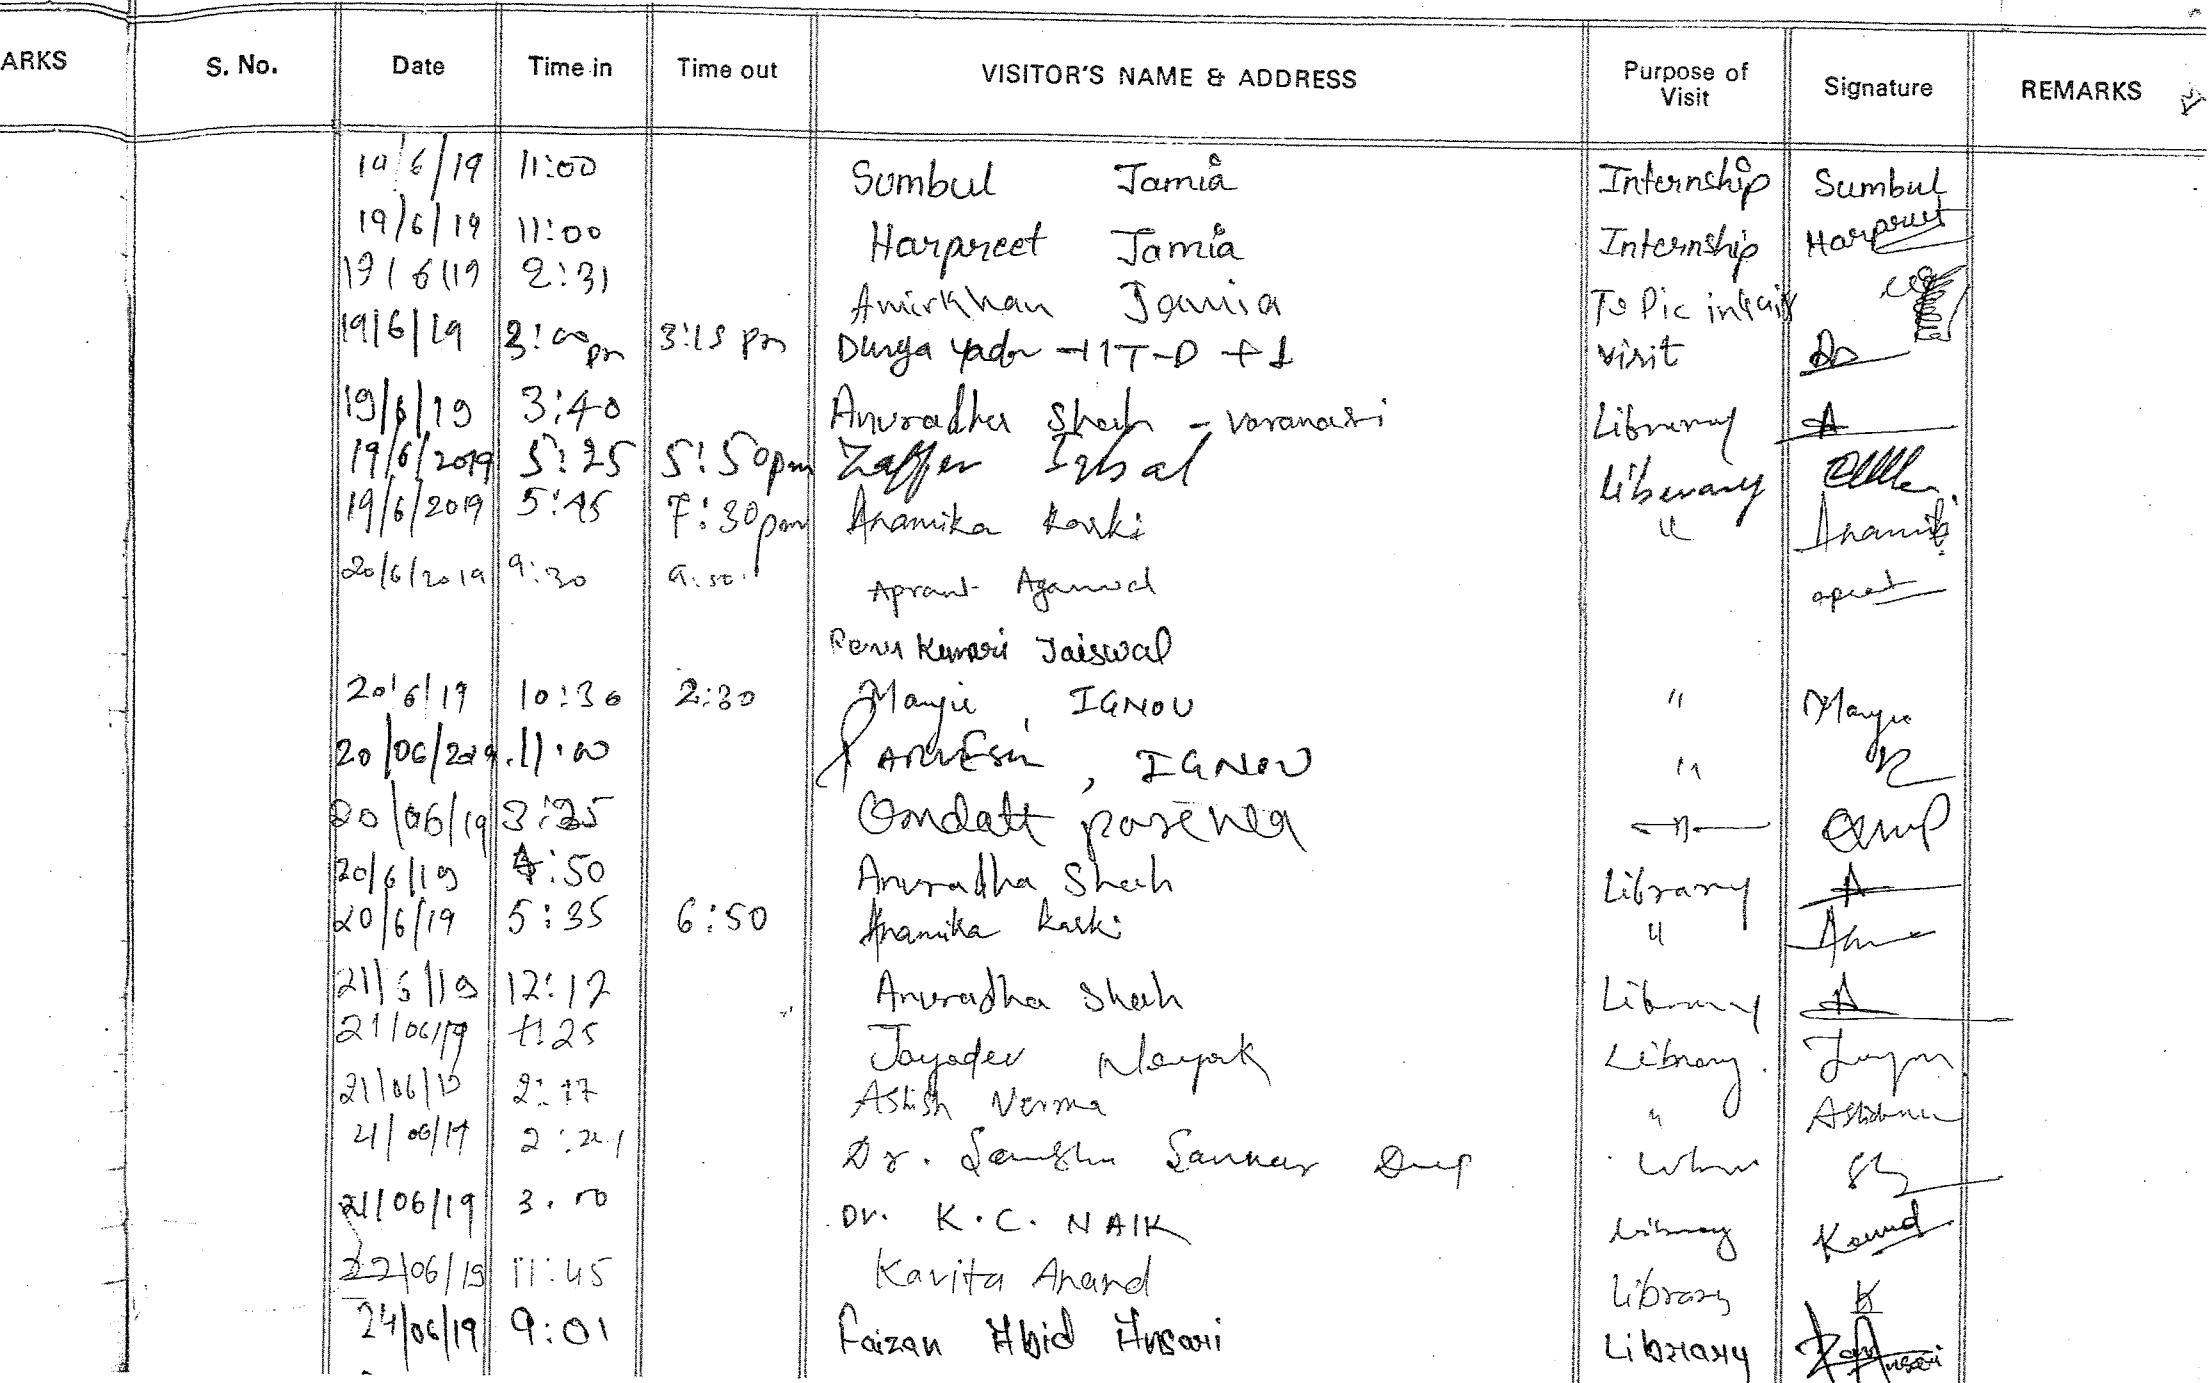 ARKS S. No. Date Time in Time out VISITOR'S NAME & ADDRESS Purpose of Visit Signature REMARKS
19/6/19 11:00 Sumbul Jamia Internship Sumbul
19/6/19 11:00 Harpreet Jamia Internship Harpreet
19/6/19 2:31 Amirkhan Jamia To Pic
19/6/19 3:00pm 3:15 pm Durga visit
19/6/19 3:40 Anuradha Shah - Varanasi Library A
19/6/2019 5:25 5:50pm Zaffer Iqbal Liberary
19/6/2019 5:45 7:30pm Anamika Karki " Anamika
20/6/2019 9:30 9:50 Agarwal
Renu Kumari Jaiswal
20/6/19 10:30 2:30 IGNOU "
20/06/2019 11:00 , IGNOU "
20/06/19 3:35 Omdatt —"—
20/6/19 4:50 Anuradha Shah Library A
20/6/19 5:35 6:50 Anamika Karki "
21/6/19 12:12 Anuradha Shah Library A
21/06/19 1:25 Jayadev Nayak Library.
21/06/19 2:17 Ashish Verma "
21/06/19 Dr.
21/06/19 3.00 Dr. K.C. NAIK Library
22/06/19 11:45 Kavita Anand Library K
24/06/19 9:01 Faizan Abid Ansari Library Ansari